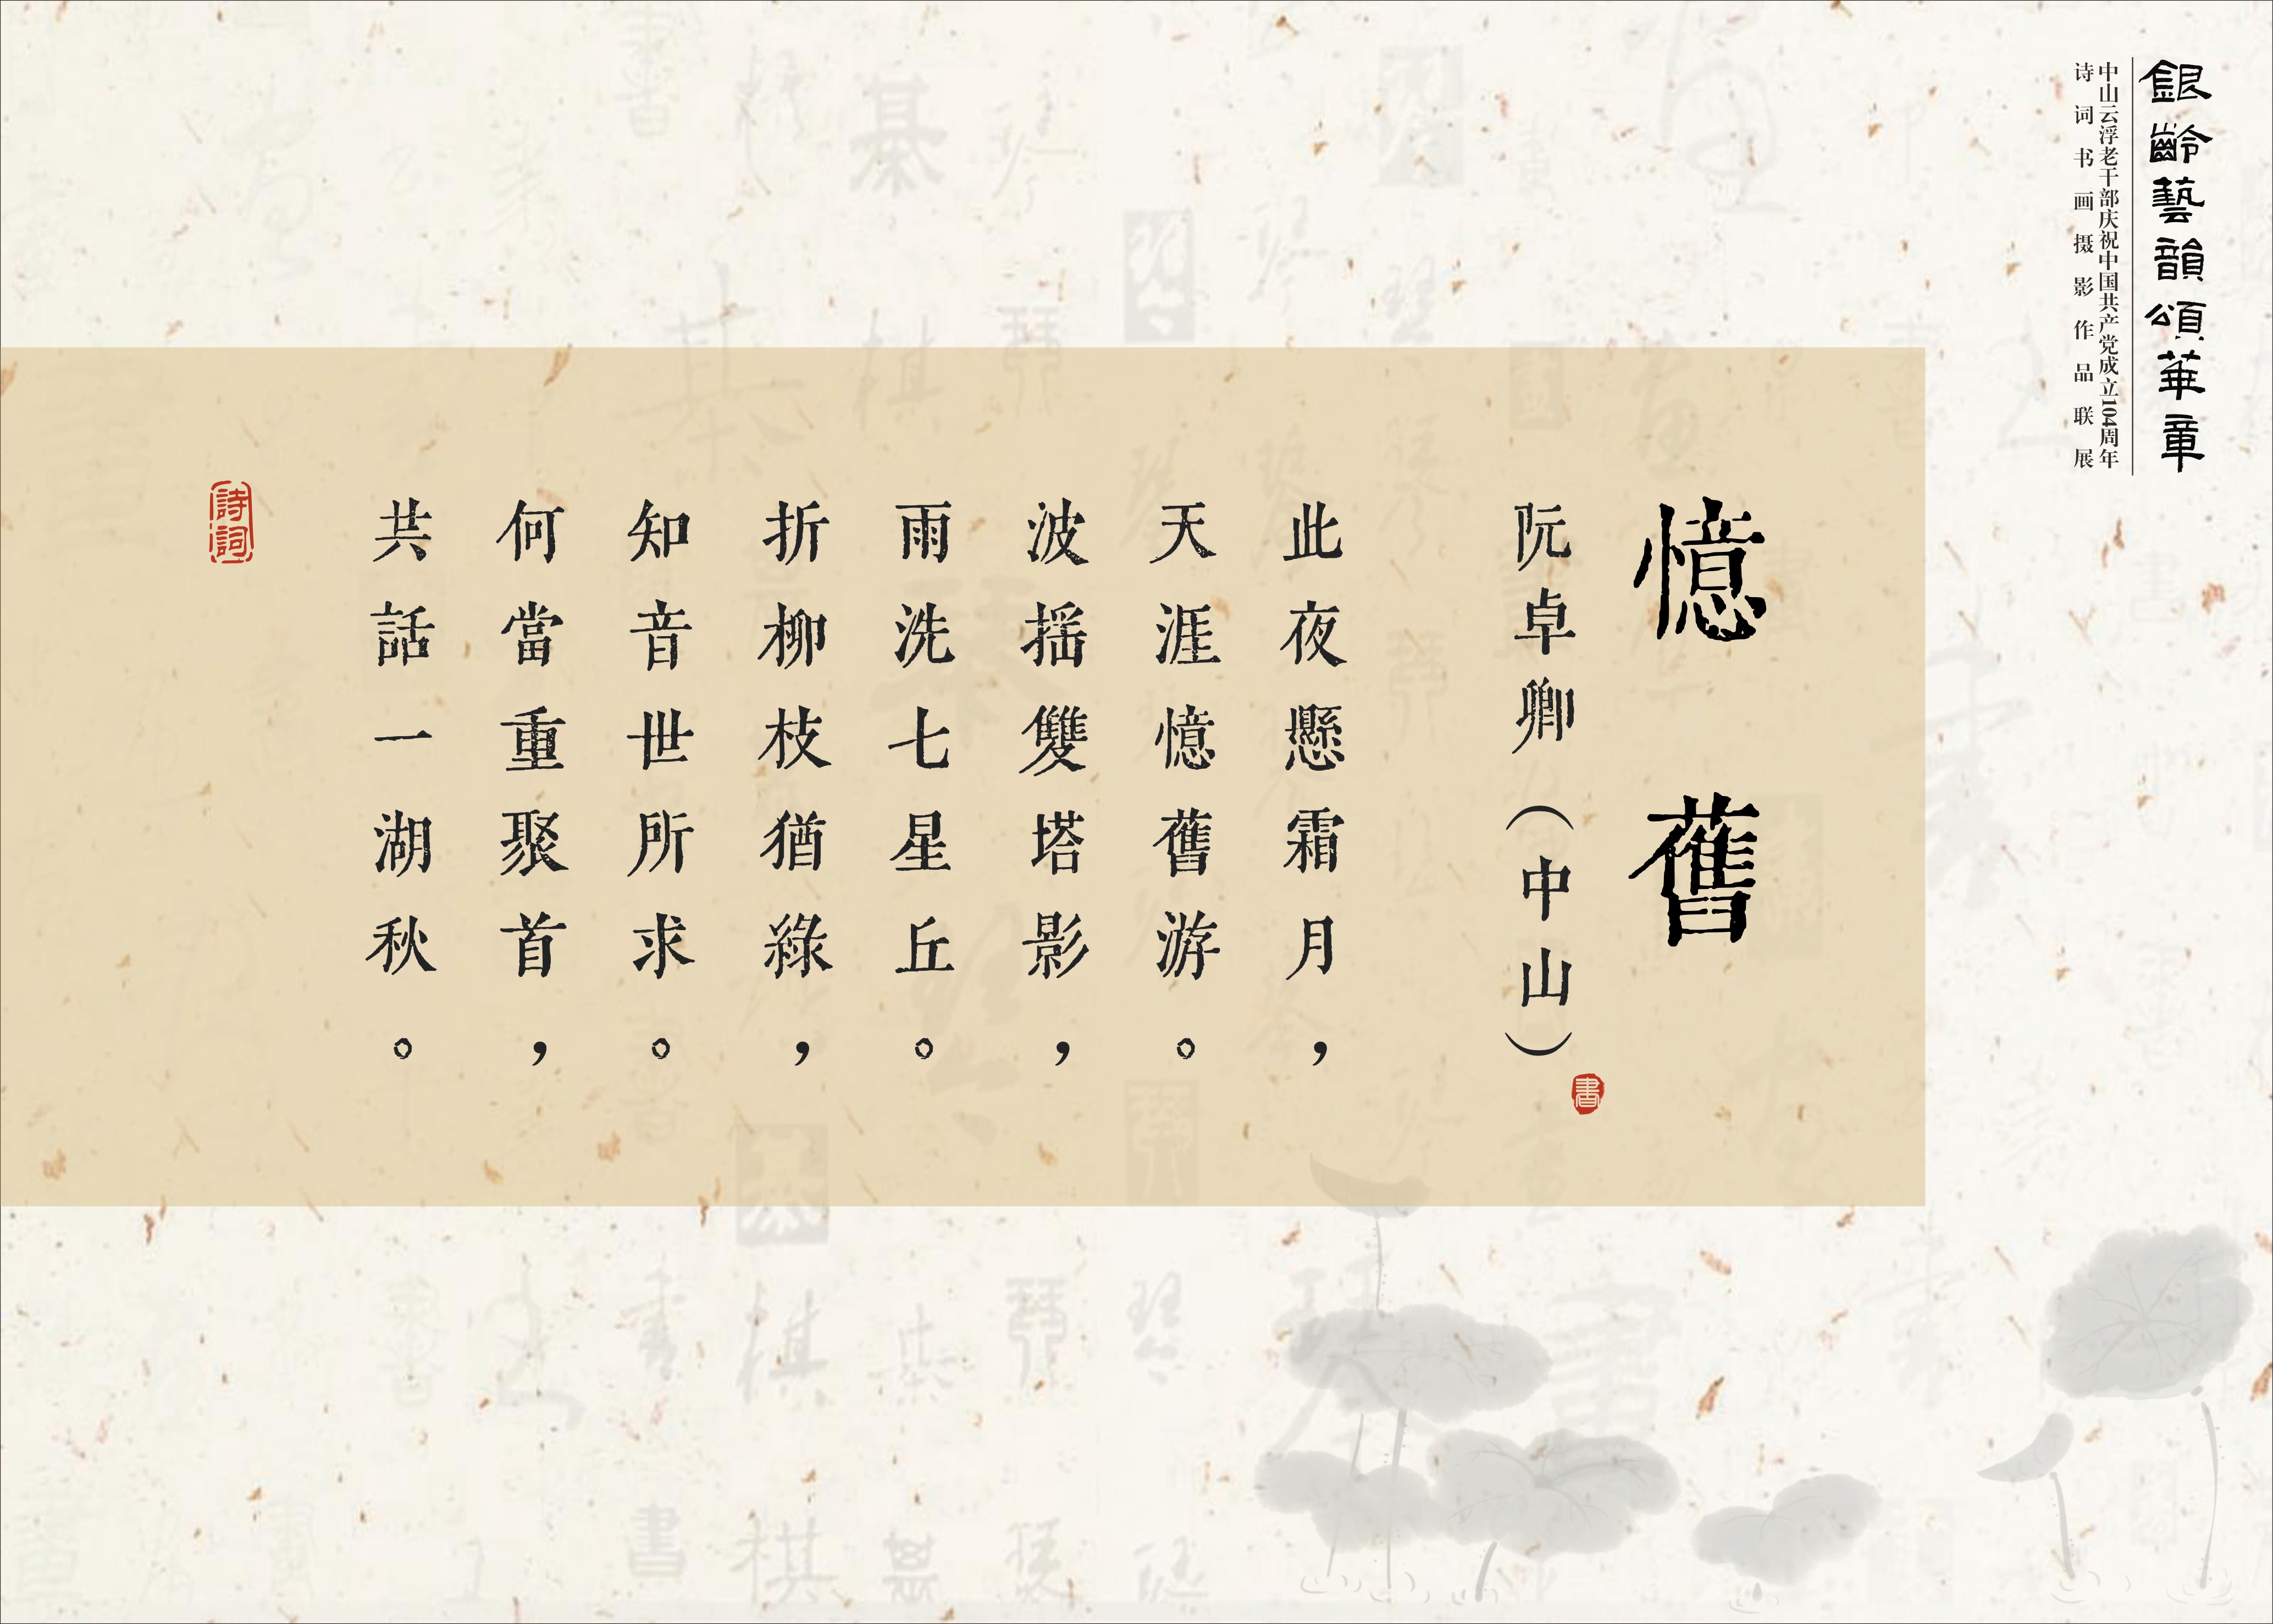 銀齡藝韻頌華章
中山云浮老干部庆祝中国共产党成立104周年
诗词书画摄影作品联展
憶舊
阮卓卿（中山）
書
此夜懸霜月，
天涯憶舊游。
波摇雙塔影，
雨洗七星丘。
折柳枝猶綠，
知音世所求。
何當重聚首，
共話一湖秋。
詩詞